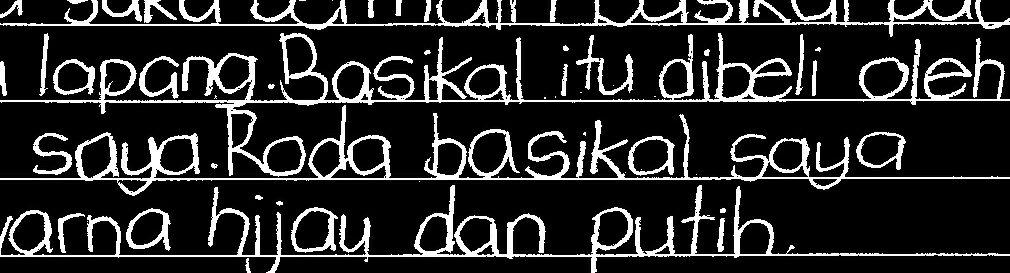 suka bermain basikal
lapang. Basikal itu dibeli oleh
saya. Roda basikal saya
arna hijau dan putih.